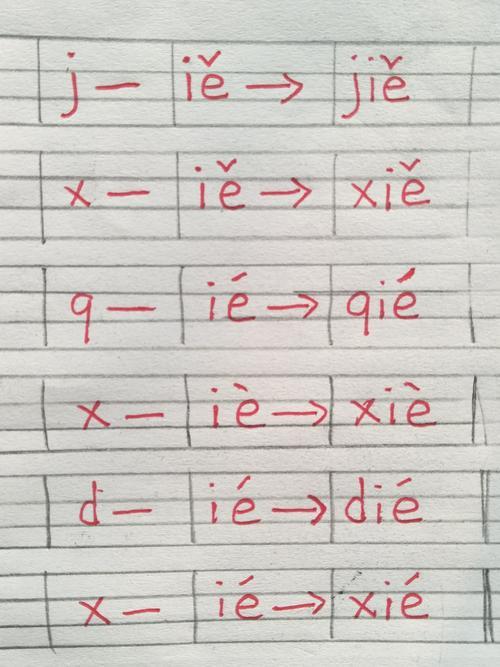 j — iě → jiě
x — iě → xiě
q — ié → qié
x — iè → xiè
d — ié → dié
x — ié → xié